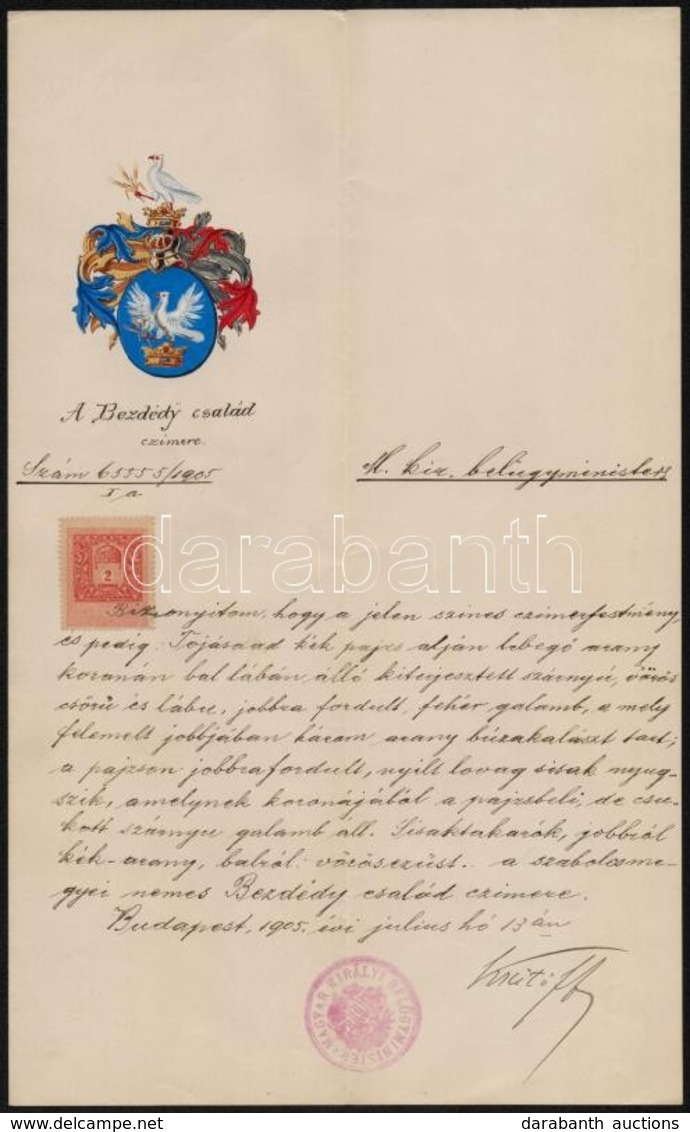 A Bezdédÿ család
czímere.
Szám 65555/1905
I/a
M. kir. belügyminister
2
darabanth
Bizonyitom, hogy a jelen szines czimerfestmény,
és pedig: Tojásdad kék pajzs alján lebegő arany
koronán bal lábán álló kiterjesztett szárnyú, vörös
csőrü és lábu, jobbra fordult, fehér galamb, a mely
felemelt jobbjában három arany búzakalászt tart;
a pajzson jobbrafordult, nyilt lovag sisak nyug-
szik, amelynek koronájából a pajzsbeli, de csu-
kott szárnyu galamb áll. Sisaktakarók, jobbról
kék-arany, balról: vörösezüst. a szabolcsme-
gyei nemes Bezdédy család czimere.
Budapest, 1905. évi julius hó 13 án
MAGYAR KIRÁLYI BELÜGYMINISTER
www.delcampe.net
darabanth auctions